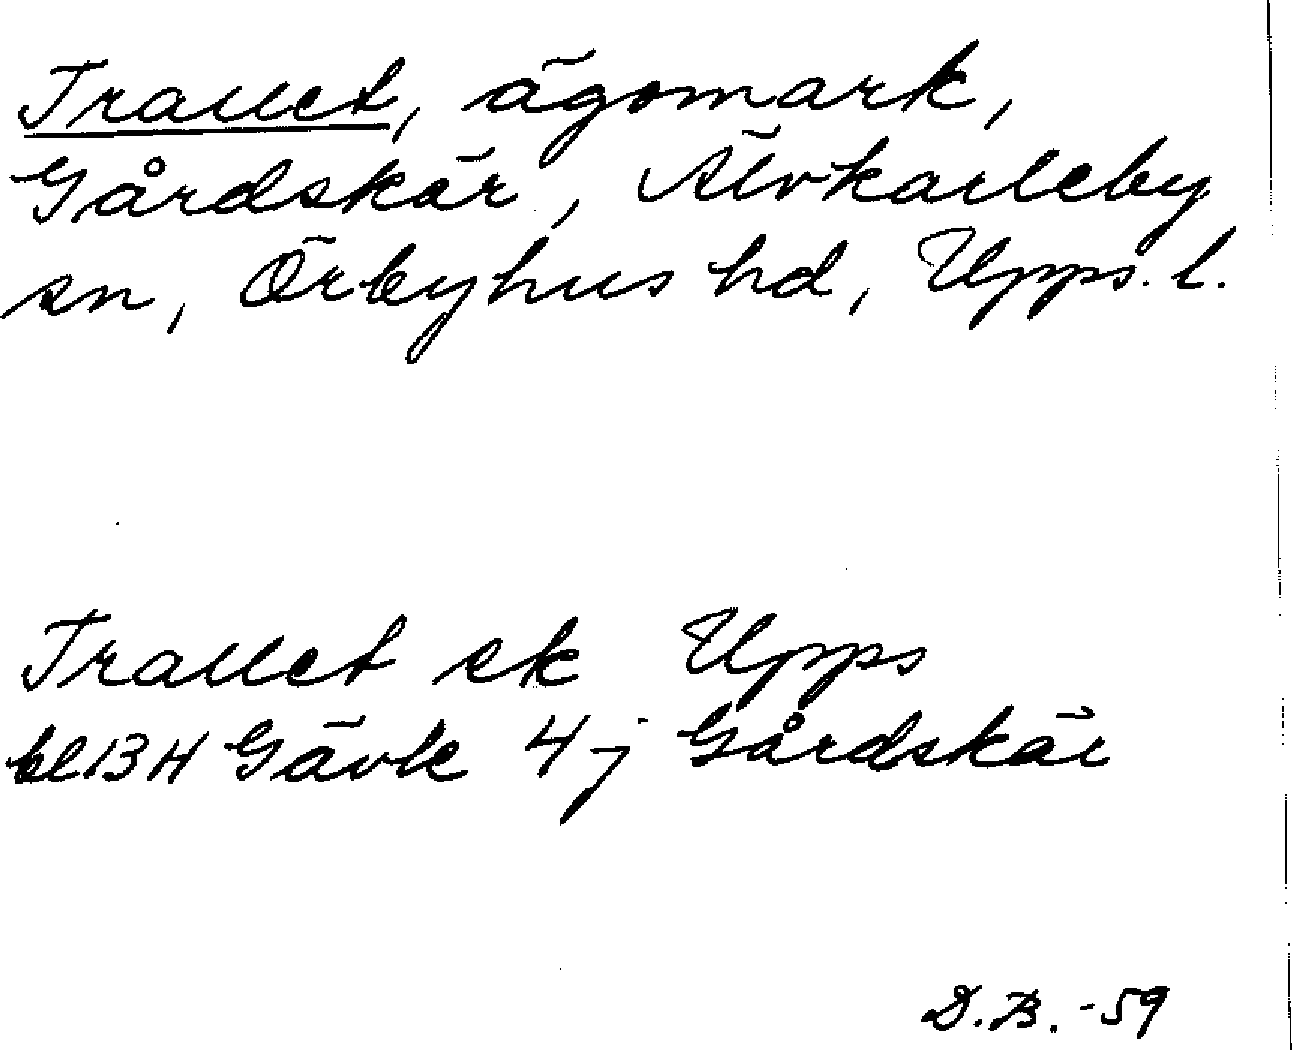 Trallet, ägomark,
Gårdskär, Älvkarleby
sn, Örbyhus hd, Upps. l.
Trallet ek Upps
bl 13 H Gävle 4 j Gårdskär
D.B. -59